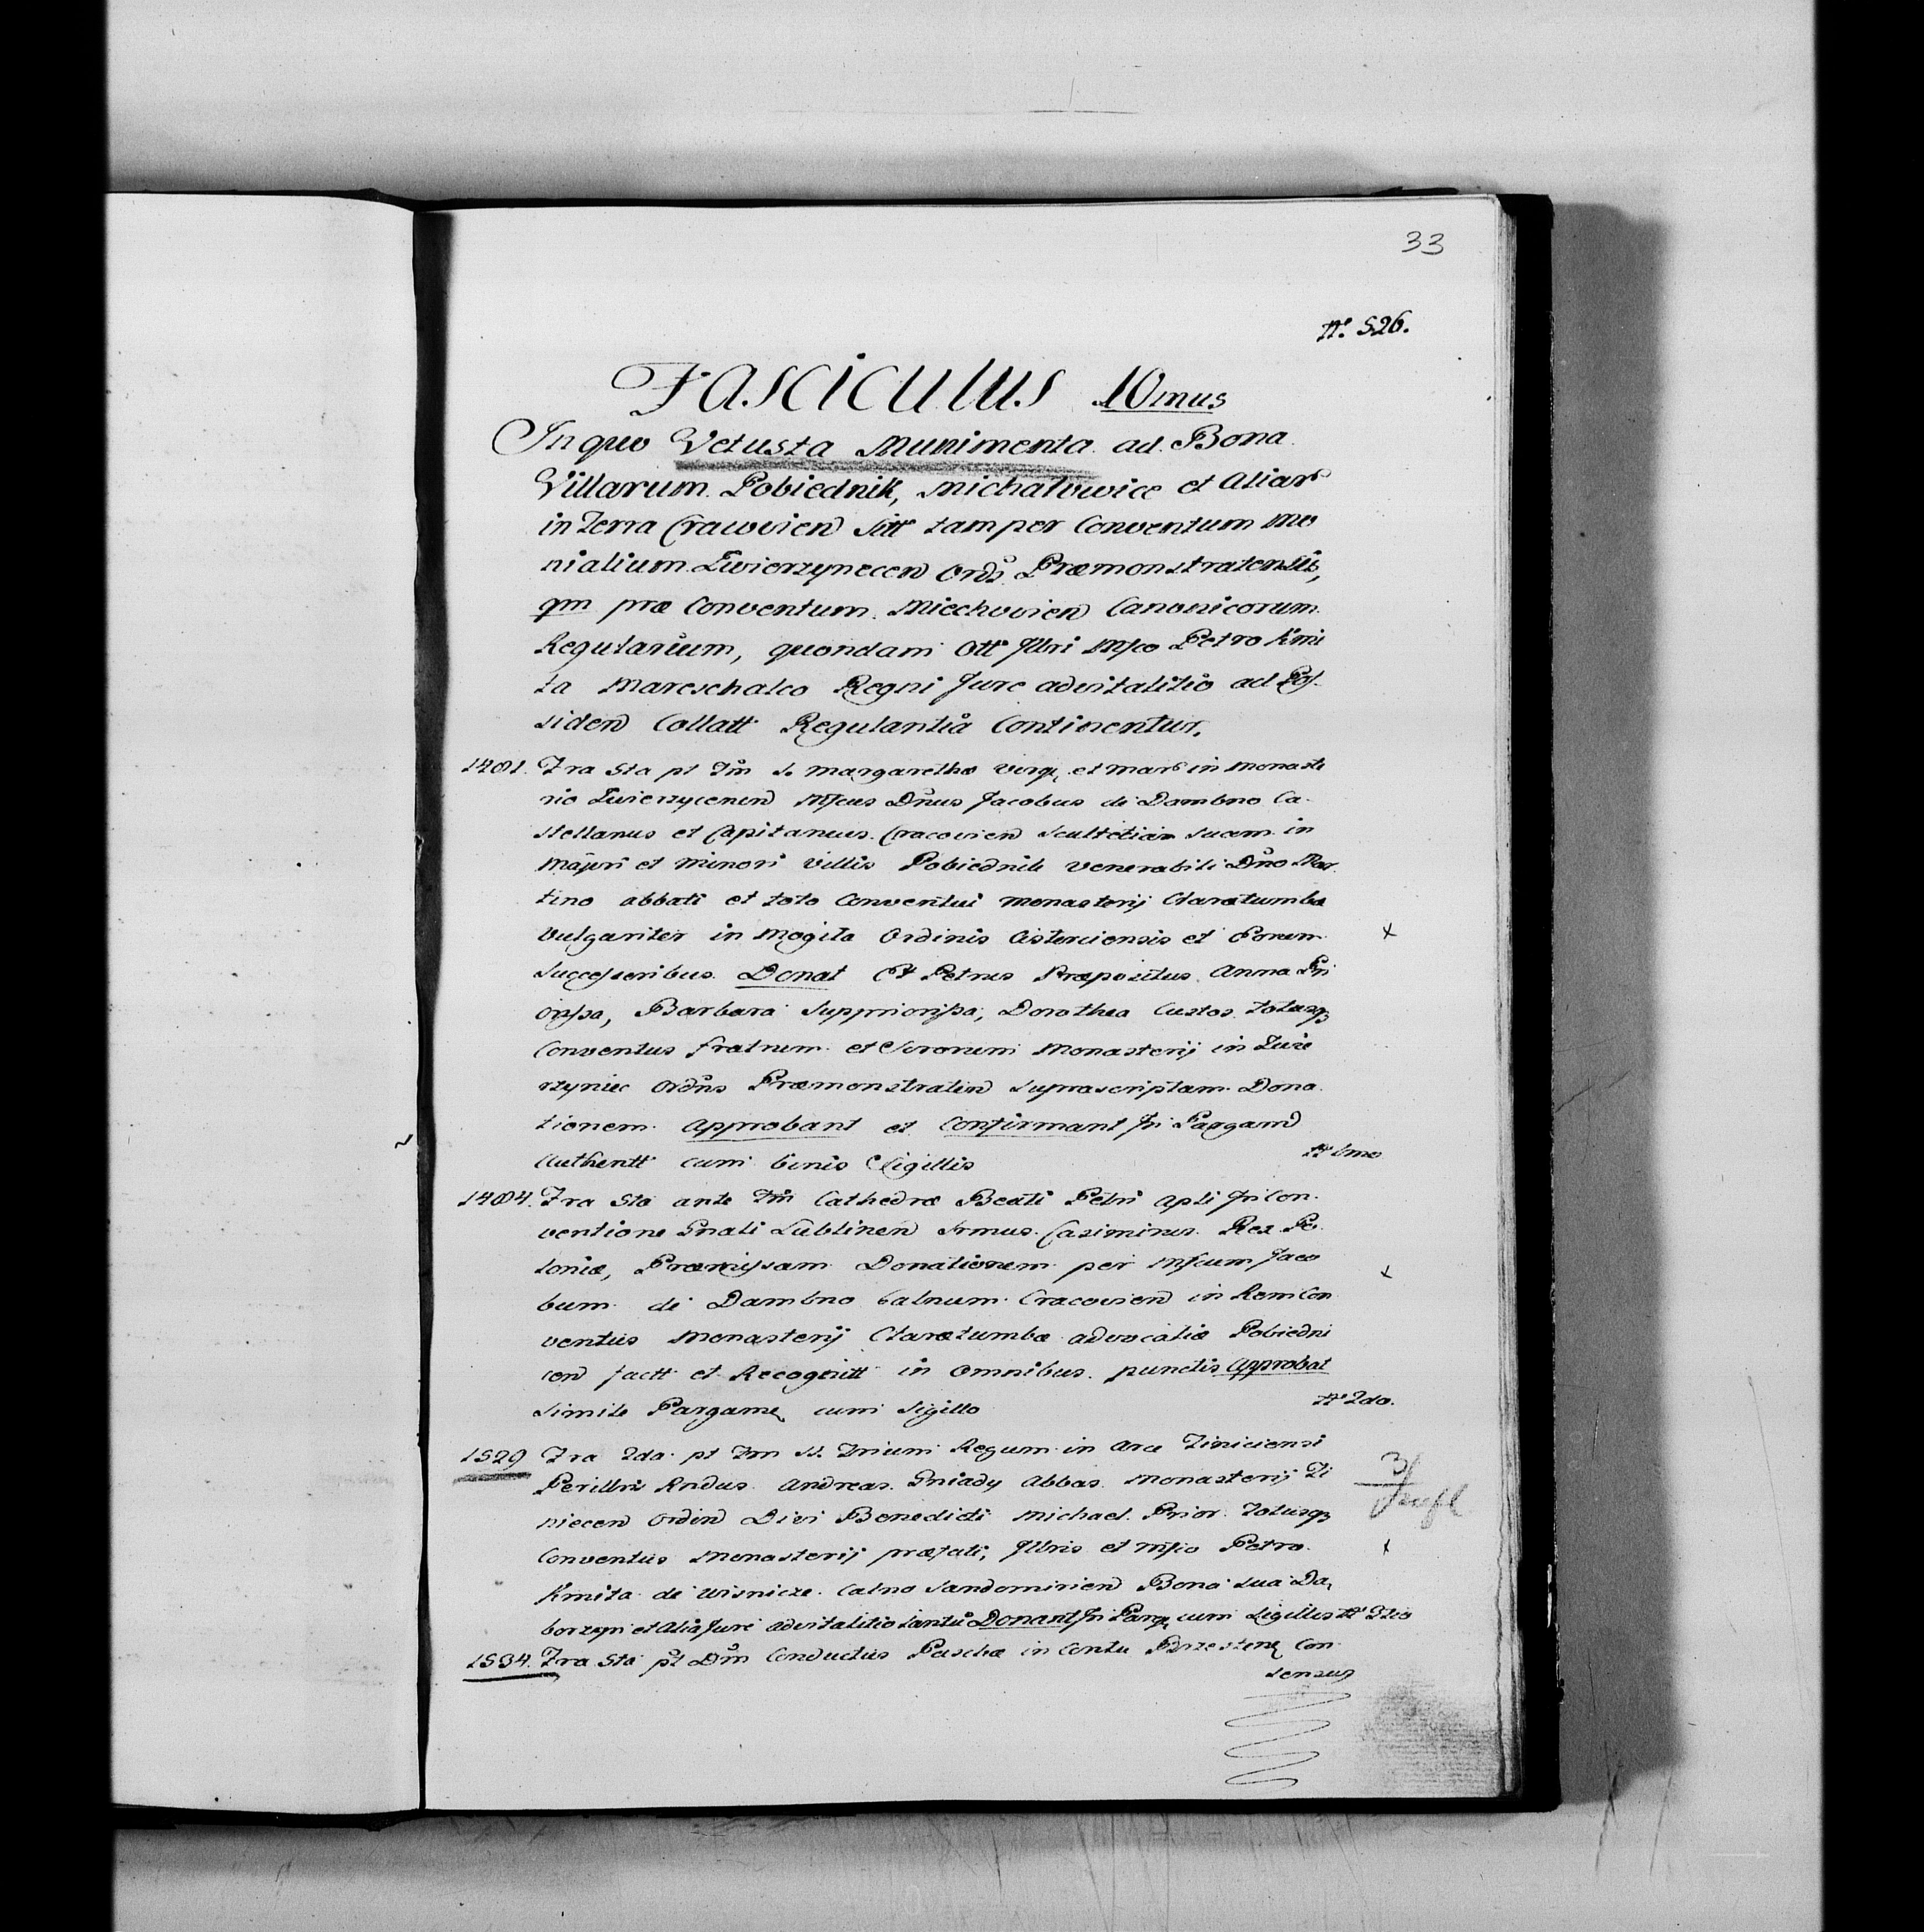 33
No. 526.
Fasciculus 10mus
In quo Vetusta Munimenta ad Bona
Villarum Pobiednik, Michalowice et Aliar
in Terra Cracovien Sitt tam per Conventum Mo
nialium Zwierzynecen Ords Præmonstratensis,
qm præ Conventum Miechovien Canonicorum
Regularium, quondam Ott Illri Mfco Petro Kmi
ta Mareschalco Regni Jure advitalitio ad Pos
siden Collatt Regulantia Continentur.
1481. Fra Sta pt Fm S. Margarethæ Virg. et Mar in Monaste
rio Zwierzycenen Mfcus Dnus Jacobus de Dambno Ca
stellanus et Capitaneus Cracovien Scultetiam suam in
Majori et Minori Villis Pobiednik Venerabili Dno Mar
tino abbati et toto Conventui Monasterij Claretumbæ
Vulgariter in Mogila Ordinis Cisterciensis et Eorum x
Successoribus Donat Et Petrus Præpositus Anna Pri
orissa, Barbara Suppriorissa, Dorothea Custos totusq
Conventus fratrum et Sororum Monasterij in Zwie
rzyniec Ordins Præmonstraten Suprascriptam Dona
tionem Approbant et Confirmant In Pargam
Authentt cum binis Sigillis No 1mo
1484. Fra Sta ante Fm Cathedræ Beati Petri Apli In Con
ventione Gnali Lublinen Srmus Casimirus Rex Po
loniæ, Præmissam Donationem per Mfcum Jaco
bum de Dambno Calnum Cracovien in Rem Con x
ventus Monasterij Claretumbæ advocatiæ Pobiedni
cen factt et Recognitt in Omnibus punctis Approbat
Simile Pargame cum Sigillo No 2do.
1529 Fra 2da pt Fm SS. Trium Regum in Arce Tiniciensi
Perillris Rndus Andreas Gniady Abbas Monasterij Ti 3/
niecen Ordin Divi Benedicti Michael Prior Totusq
Conventus Monasterij præfati, Illris et Mfco Petro x
Kmita de Wisnicze Calno Sandomirien Bona sua Da
borzyn et Alia Jure advitalitio tantu Donant In Parg cum Sigillis No 3tio
1534. Fra Sta pt Dm Conductus Paschæ in Contu Brzesten Con
sensus